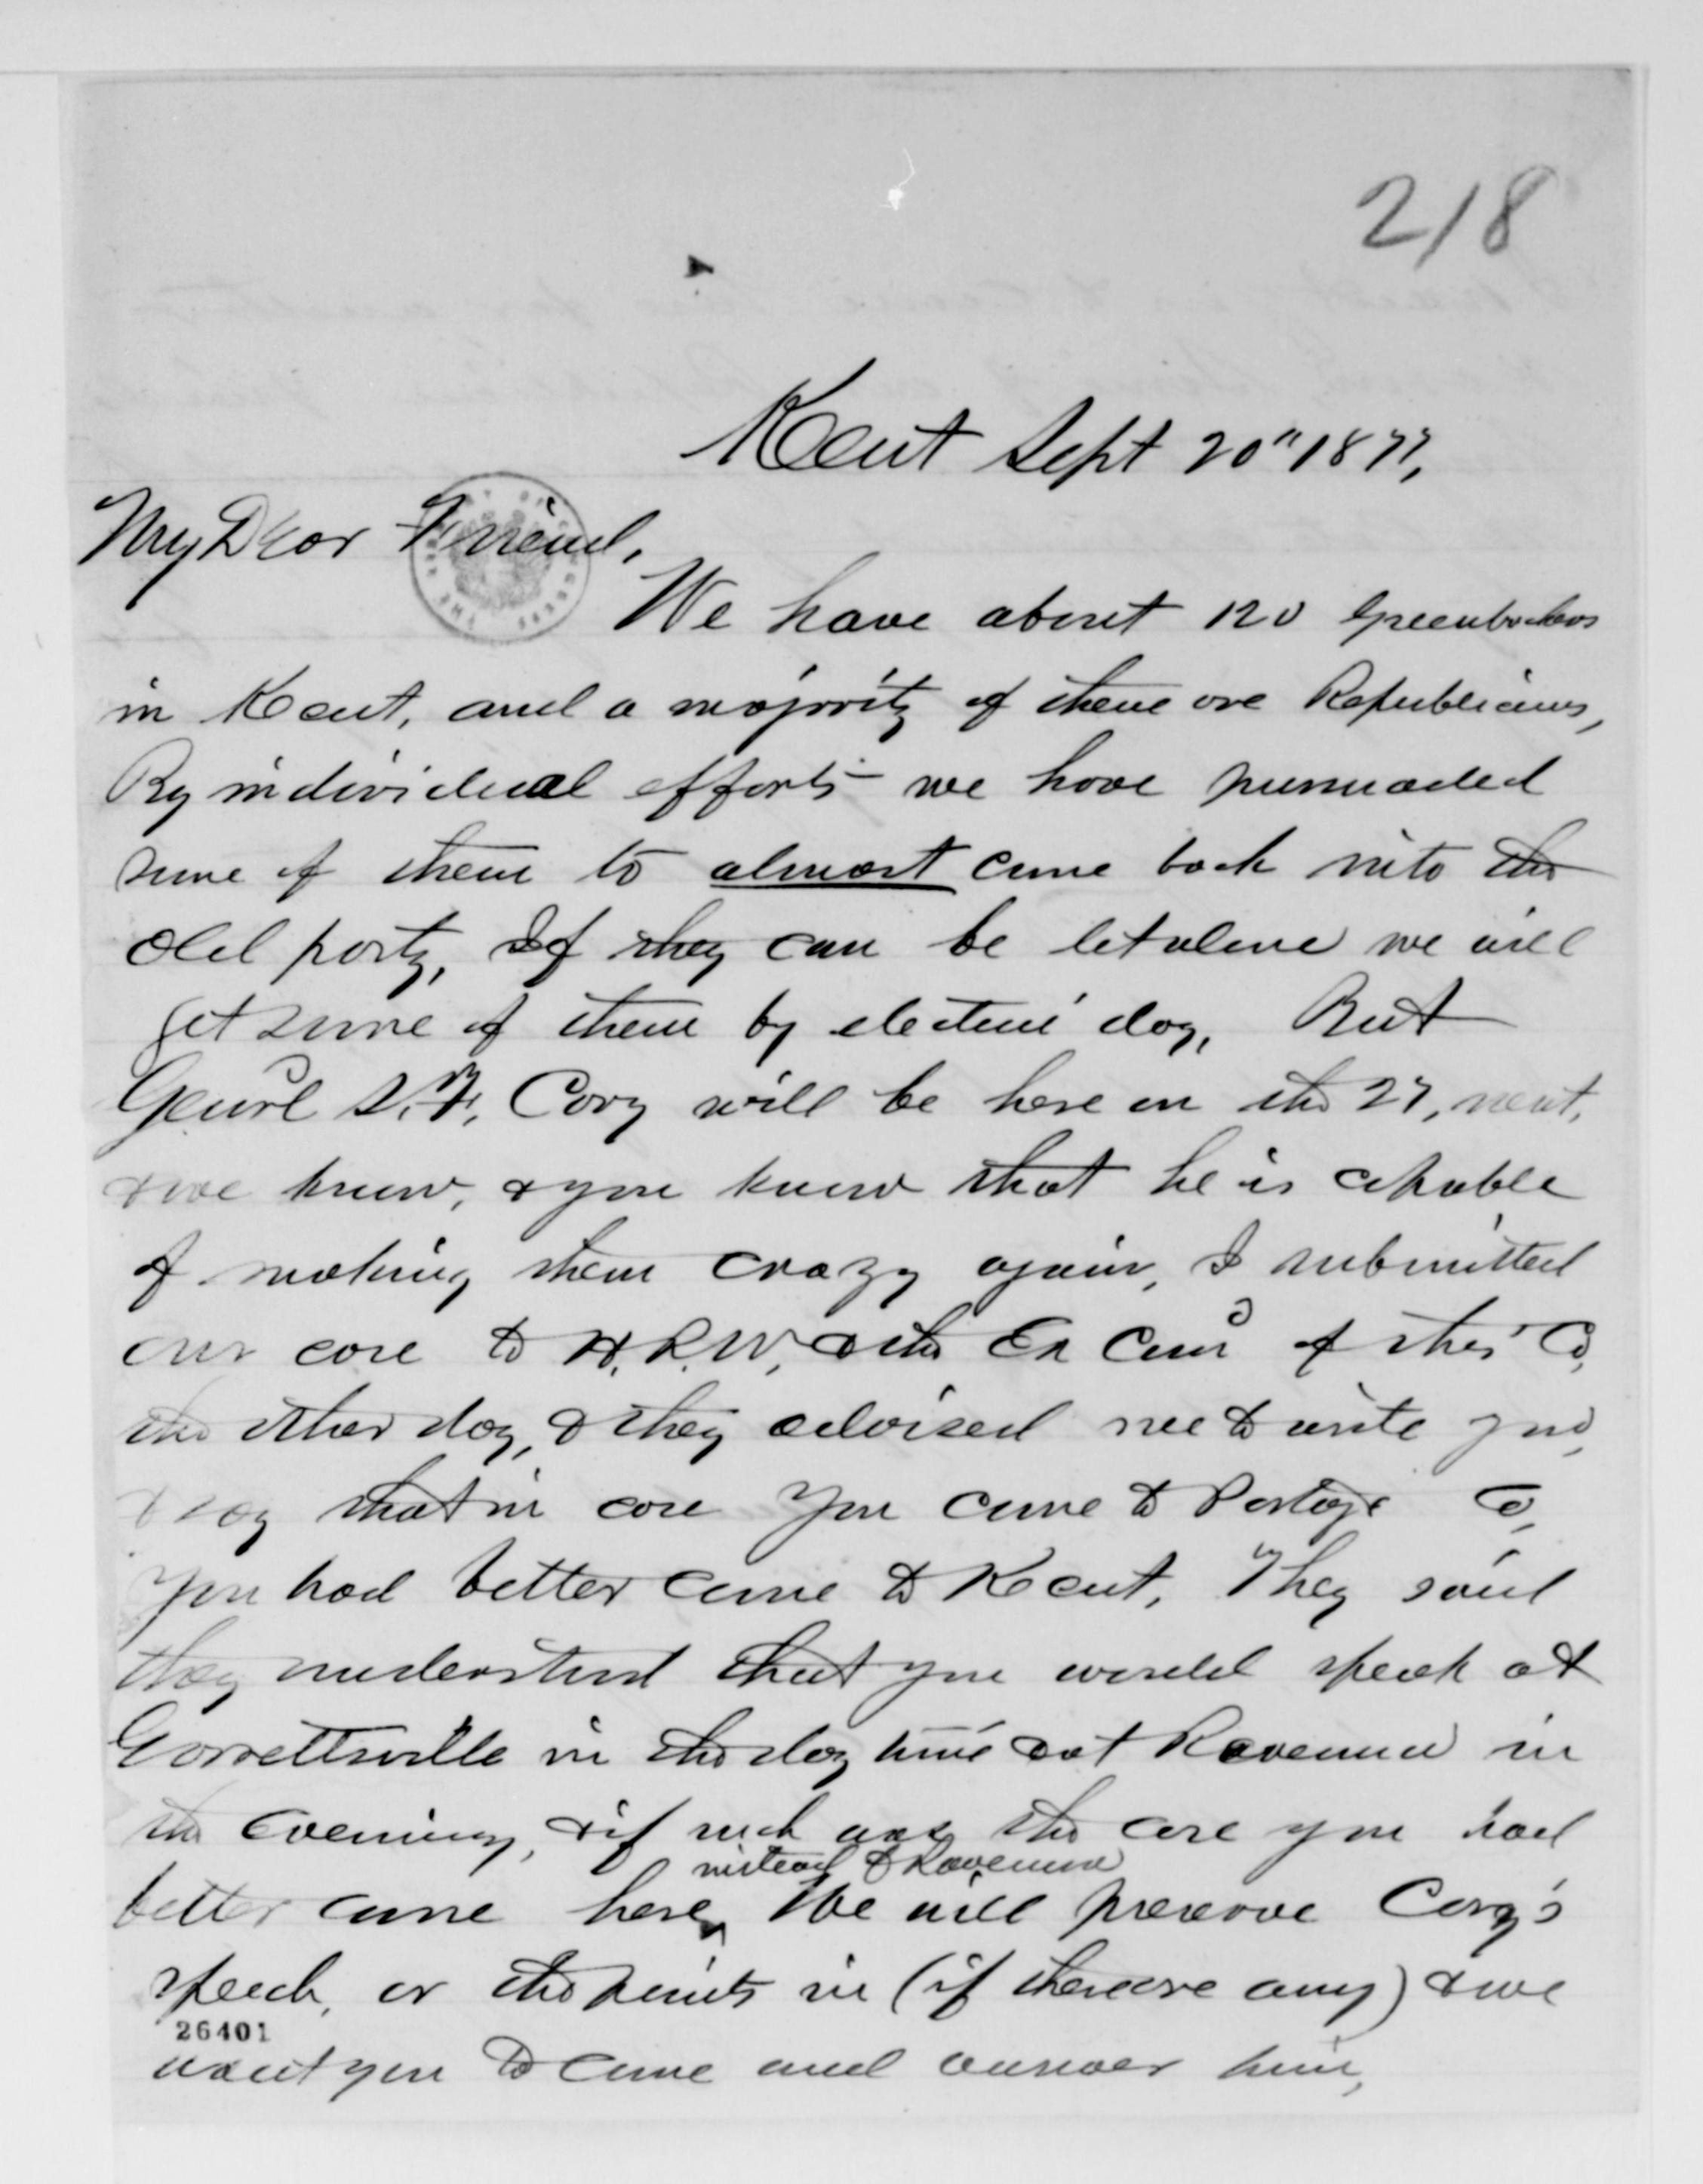 218
Kent Sept 20" 1877,
My Dear Friend,
We have about 120 Greenbackers
in Kent, and a majority of them are Republicans,
By individual efforts we have pursuaded
some of them to almost come back into the
old party, If they can be let alone we will
get some of them by election day, But
Genrl S. F. Cary will be here on the 27, next,
& we know, & you know that he is capable
of making them crazy again, I submitted
our case to H. R. W, & the Ex Com of this Co,
the other day, & they advised me to write you,
& say that in case you come to Portage Co,
You had better come to Kent, They said
they understood that you would speak at
Garrettsville in the day time & at Ravenna in
the evening, & if such was the case you had
instead of Ravenna
better come here, We will preserve Cary's
speech, or the points in (if there are any) & we
26401
want you to come and answer him,